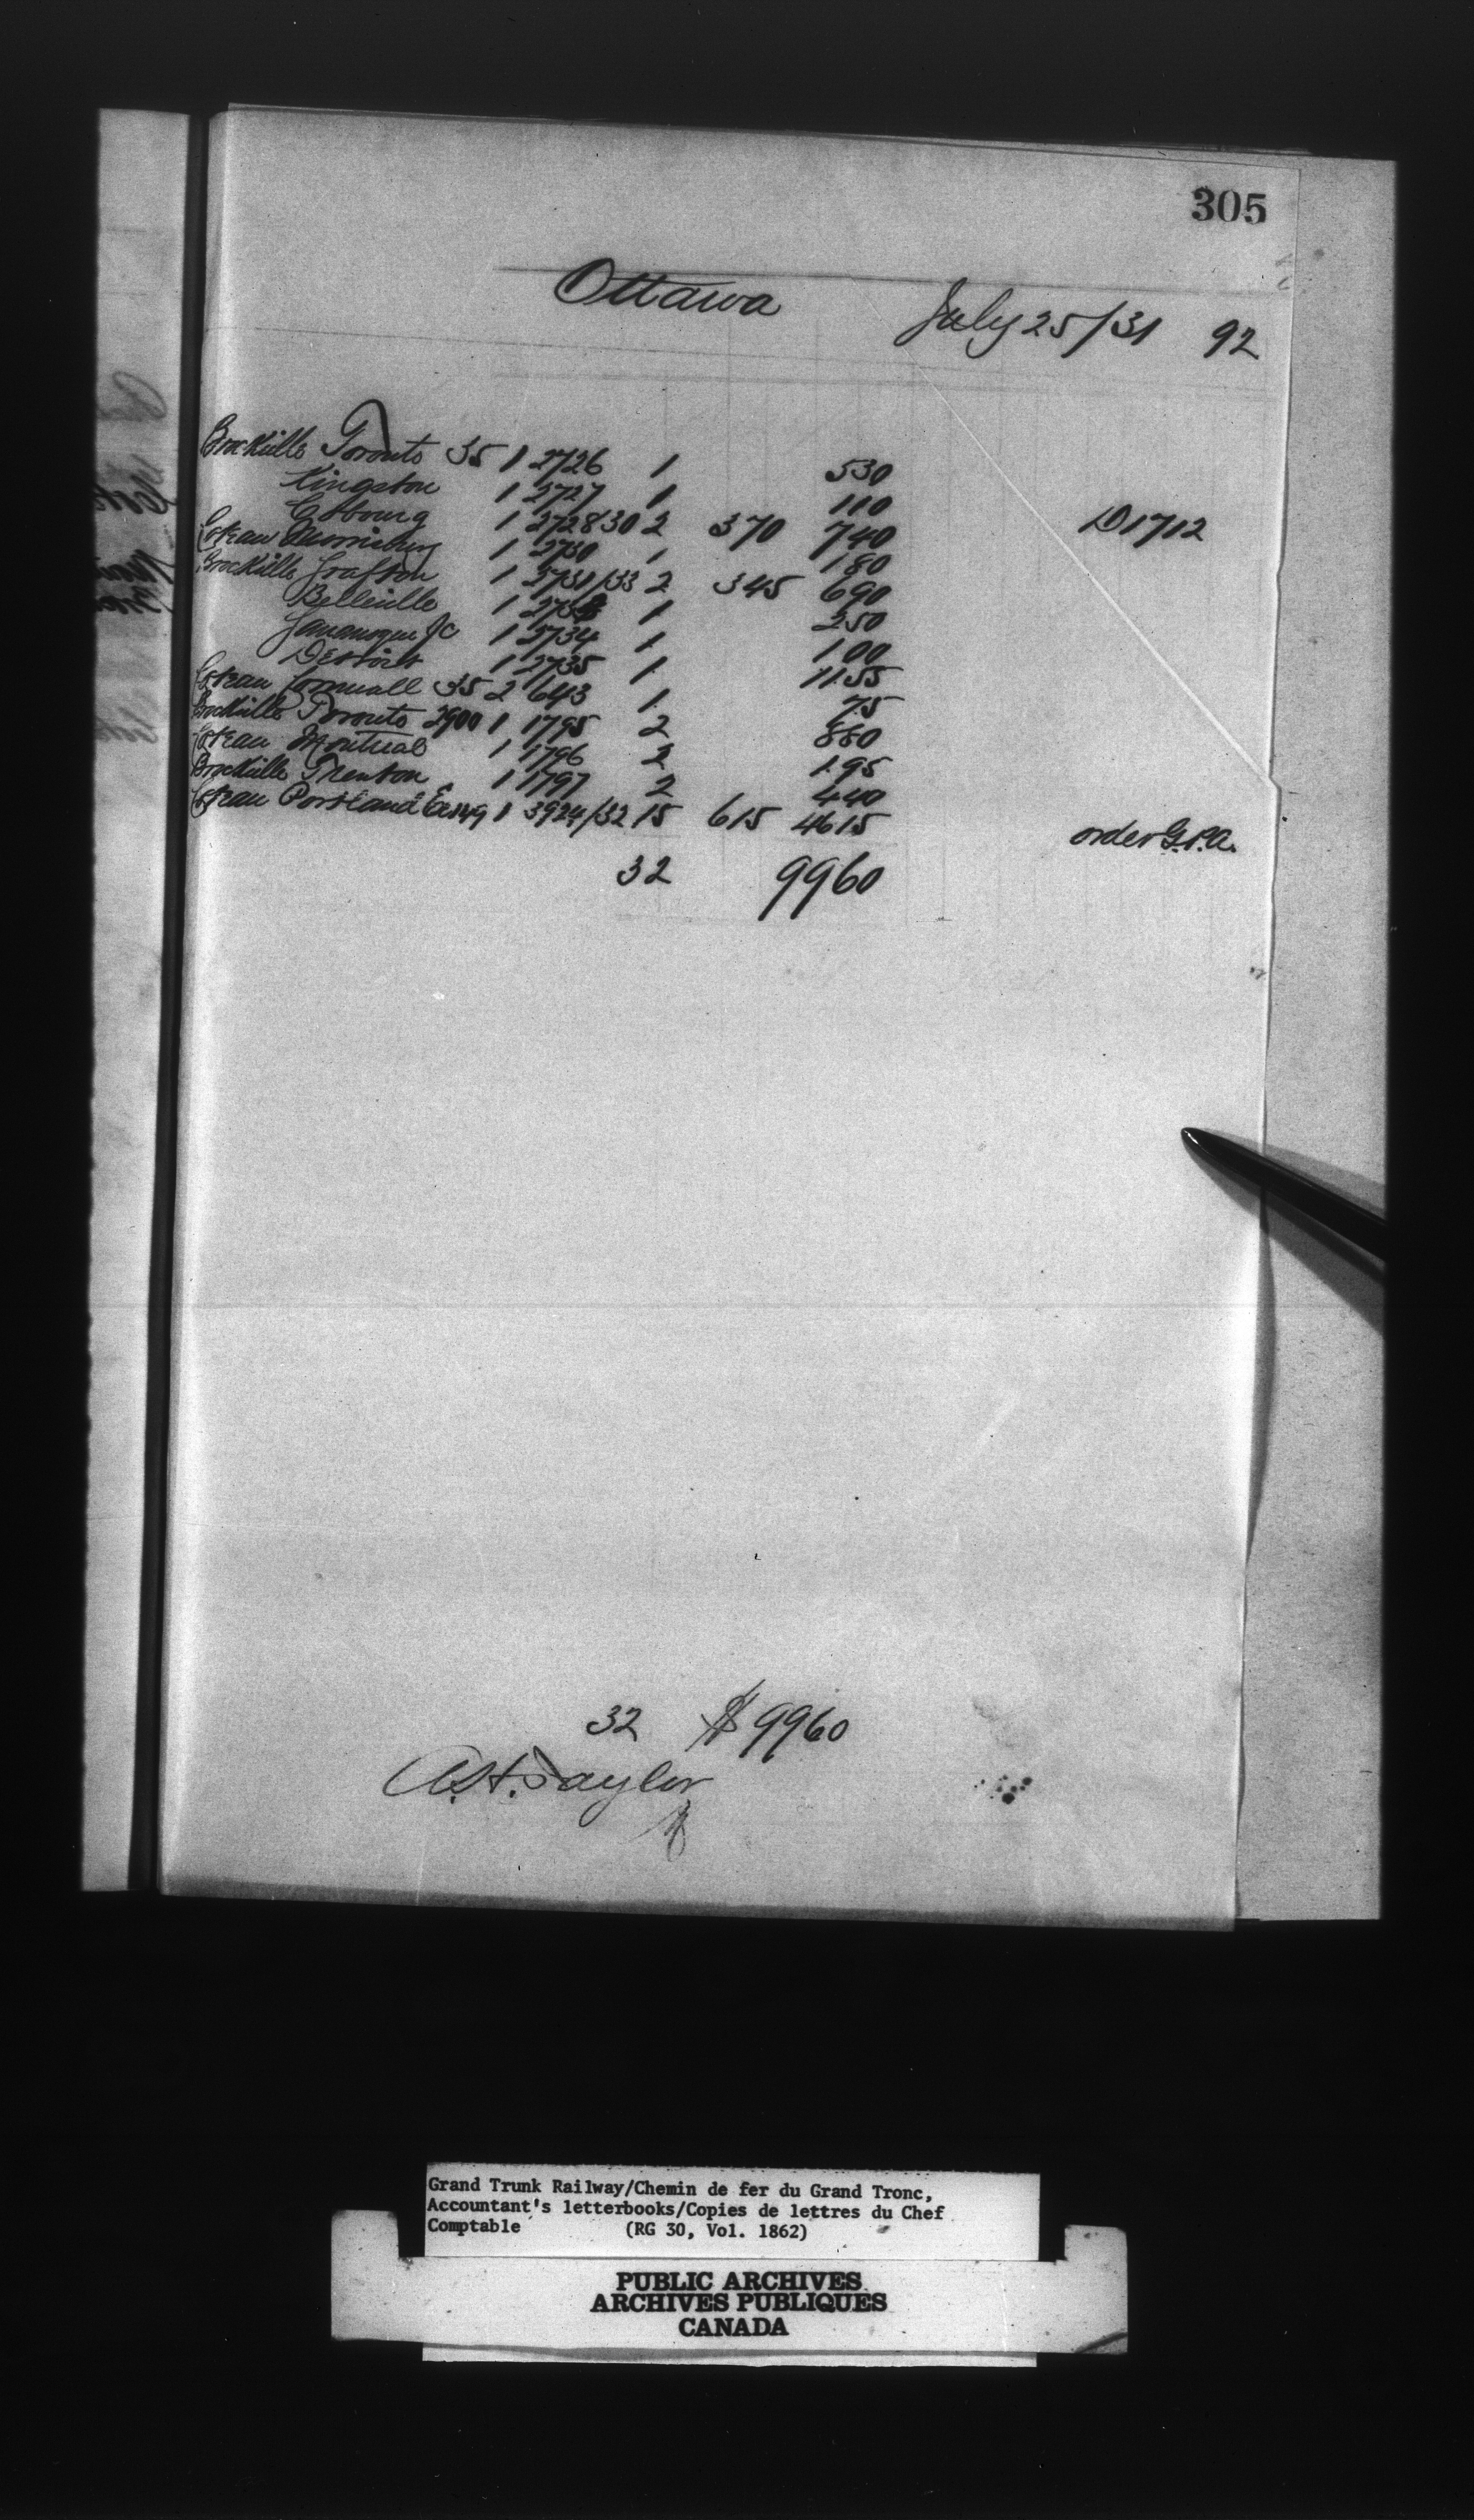 305
Ottawa July 25/31 92
Brockville Toronto 35 1 2726 1 530
Kingston 1 2727 1 110
Cobourg 1 2728/30 2 370 740 D1712
Coteau Morrisburg 1 2730 1 180
Brockville Grafton 1 2731/33 2 345 690
Belleville 1 2733 1 250
Gananoque Jc 1 2734 1 100
Detroit 1 2735 1 1155
Coteau Cornwall 35 2 643 1 75
Brockville Toronto 2900 1 1795 2 880
Coteau Montreal 1 1796 2 195
Brockville Trenton 1 1797 2 440
Coteau Portland 1 3924/32 15 615 4615 order G.P.A.
32 9960
32 $9960
A.H. Taylor
Grand Trunk Railway/Chemin de fer du Grand Tronc,
Accountant's letterbooks/Copies de lettres du Chef
Comptable (RG 30, Vol. 1862)
PUBLIC ARCHIVES
ARCHIVES PUBLIQUES
CANADA